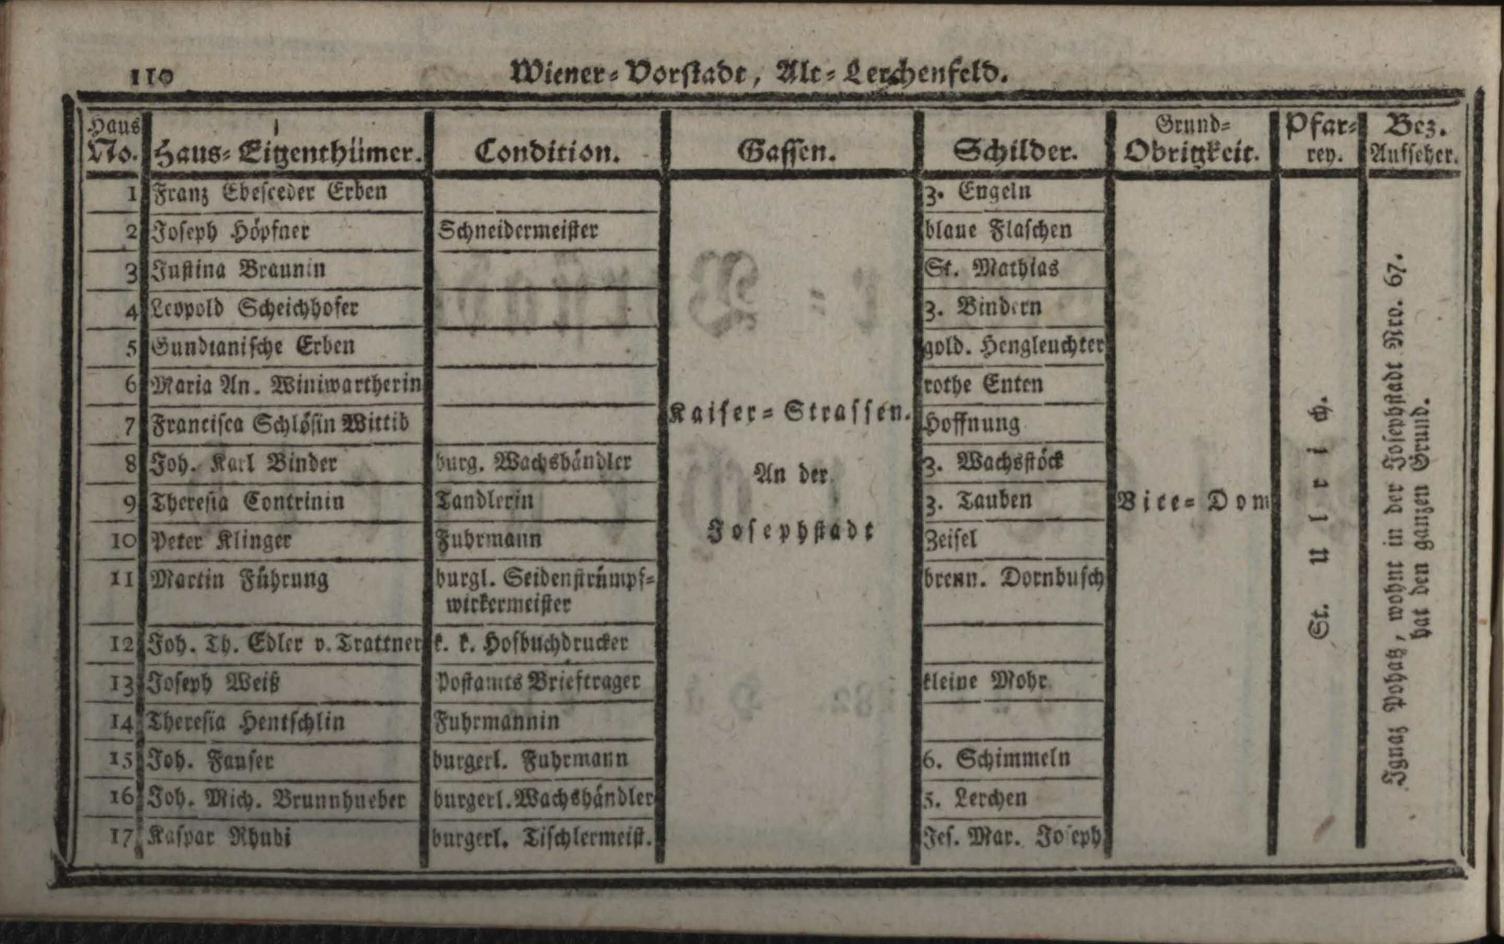 110
Wiener-Vorstadt, Alt-Lerchenfeld.
Haus No. Haus-Eigenthümer. Condition. Gassen. Schilder. Grund-Obrigkeit. Pfar-rey. Bez. Aufseher.
1 Franz Ebeseeder Erben 3. Engeln
2 Joseph Höpfner Schneidermeister blaue Flaschen
3 Justina Braunin St. Mathias
4 Leopold Scheichhofer 3. Bindern
5 Gundianische Erben gold. Hengleuchter
6 Maria An. Winiwartherin rothe Enten
7 Francisca Schlösin Wittib Hoffnung
8 Joh. Karl Binder burg. Wachshändler 3. Wachsstöck
9 Theresia Contrinin Tandlerin 3. Tauben
10 Peter Klinger Fuhrmann Zeisel
11 Martin Führung burgl. Seidenstrümpf- brenn. Dornbusch
wirkermeister
12 Joh. Th. Edler v. Trattner k. k. Hofbuchdrucker
13 Joseph Weiß Postamts Brieftrager kleine Mohr
14 Theresia Hentschlin Fuhrmannin
15 Joh. Fauser burgerl. Fuhrmann 6. Schimmeln
16 Joh. Mich. Brunnhueber burgerl. Wachshändler 5. Lerchen
17 Kaspar Rhudi burgerl. Tischlermeist. Jes. Mar. Joseph
Kaiser-Strassen.
An der
Josephstadt
Vice-Dom
St. Ulrich.
Ignaz Pohatz, wohnt in der Josephstadt Nro. 67.
hat den ganzen Grund.